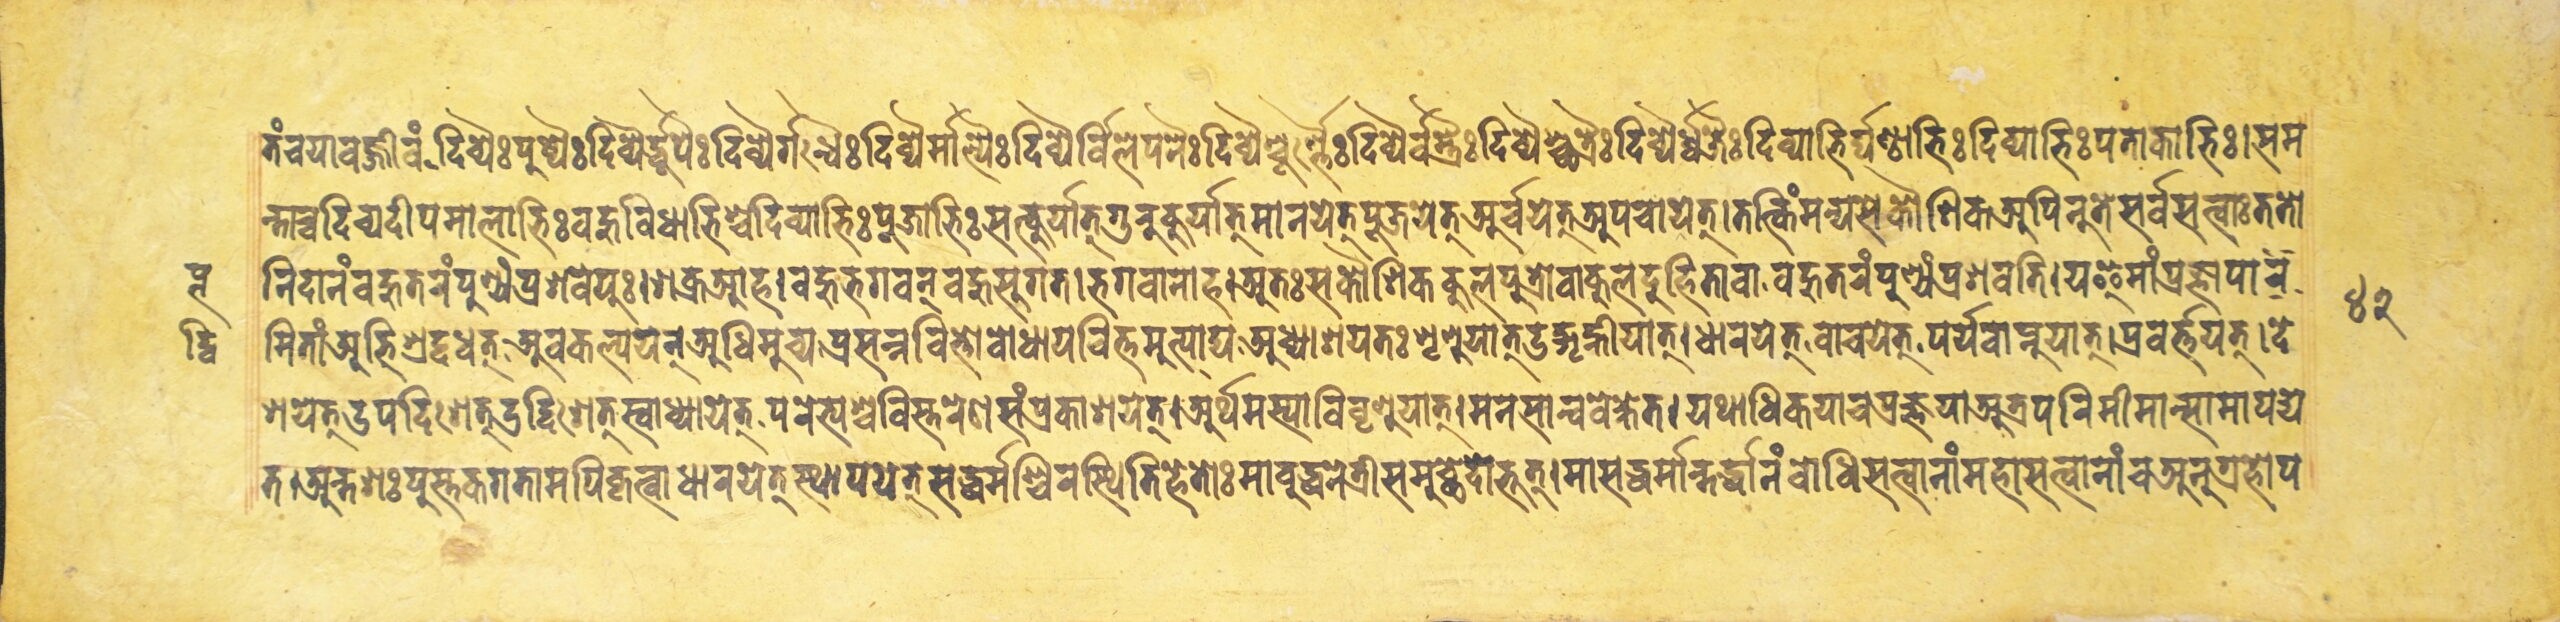 तंचयावज्जीवं दिव्यैःपुष्पैःदिव्यैर्द्धूपैःदिव्यैर्गन्धैःदिव्यैर्माल्यैःदिव्यैर्विलेपनैःदिव्यैश्चूर्ण्णैःदिव्यैर्वस्त्रैःदिव्यैश्छत्रैःदिव्यैर्ध्वजैःदिव्याभिर्घण्टाभिःदिव्याभिःपताकाभिः।सम
न्ताच्चदिव्यदीपमालाभिःबहुविधाभिश्चदिव्याभिःपूजाभिःसत्कुर्यात्गुरुकुर्यात्मानयेत्पूजयेत्अर्चयेत्अपचायेत्।तत्किंमन्यसेकौशिकअपिनुतेसर्वसत्वाःततो
निदानंबहुतरंपुण्यंप्रशवेयुः।शक्रआह।बहुभगवन्बहुसुगत।भगवानाह।अतःसकौशिककुलपुत्रोवाकुलदुहितावा बहुतरंपुण्यंप्रशवति।यइमांप्रज्ञापार
मितांअभिश्रद्दधत् अवकल्पयन्अधिमुच्य प्रसन्नचित्तोबोधायचित्तमुत्पाद्य अध्याशयतःशृणुयात्उद्गृह्णीयात्।धारयेत् वाचयेत् पर्यवाप्नुयात्।प्रवर्त्तयत्।दे
शयेत्उपदिशेत्उद्दिशेत्स्वाध्यायेत् परेभ्यश्चविस्तरेणसंप्रकाशयेत्।अर्थमस्याविवृणुयात्।मनसान्ववेक्षेत।यथाधिकयाचप्रज्ञयाअत्रपरिमीमान्सामापद्ये
त।अन्तशःपुस्तकगतामपिकृत्वाधारयेत्स्थापयेत्सद्धर्मश्चिरस्थितिहेतोःमाबुद्धनेत्रीसमुच्छेदोभूत्।मासद्धर्मान्तर्द्धानंबोधिसत्वानांमहासत्वानांचअनुग्रहोप
द्वि
४२